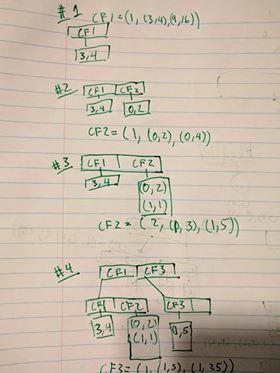 #1 CF1 = (1, (3,4), (9,16))
CF1
3,4
#2 CF1 CF2
3,4 0,2
CF2 = (1, (0,2), (0,4))
#3 CF1 CF2
3,4 (0,2)
(1,1)
CF2 = (2, (0,3), (1,5))
#4 CF1 CF3
CF1 CF2 CF3
3,4 (0,2) 0,5
(1,1)
CF3 = (1, (1,5), (1,25))